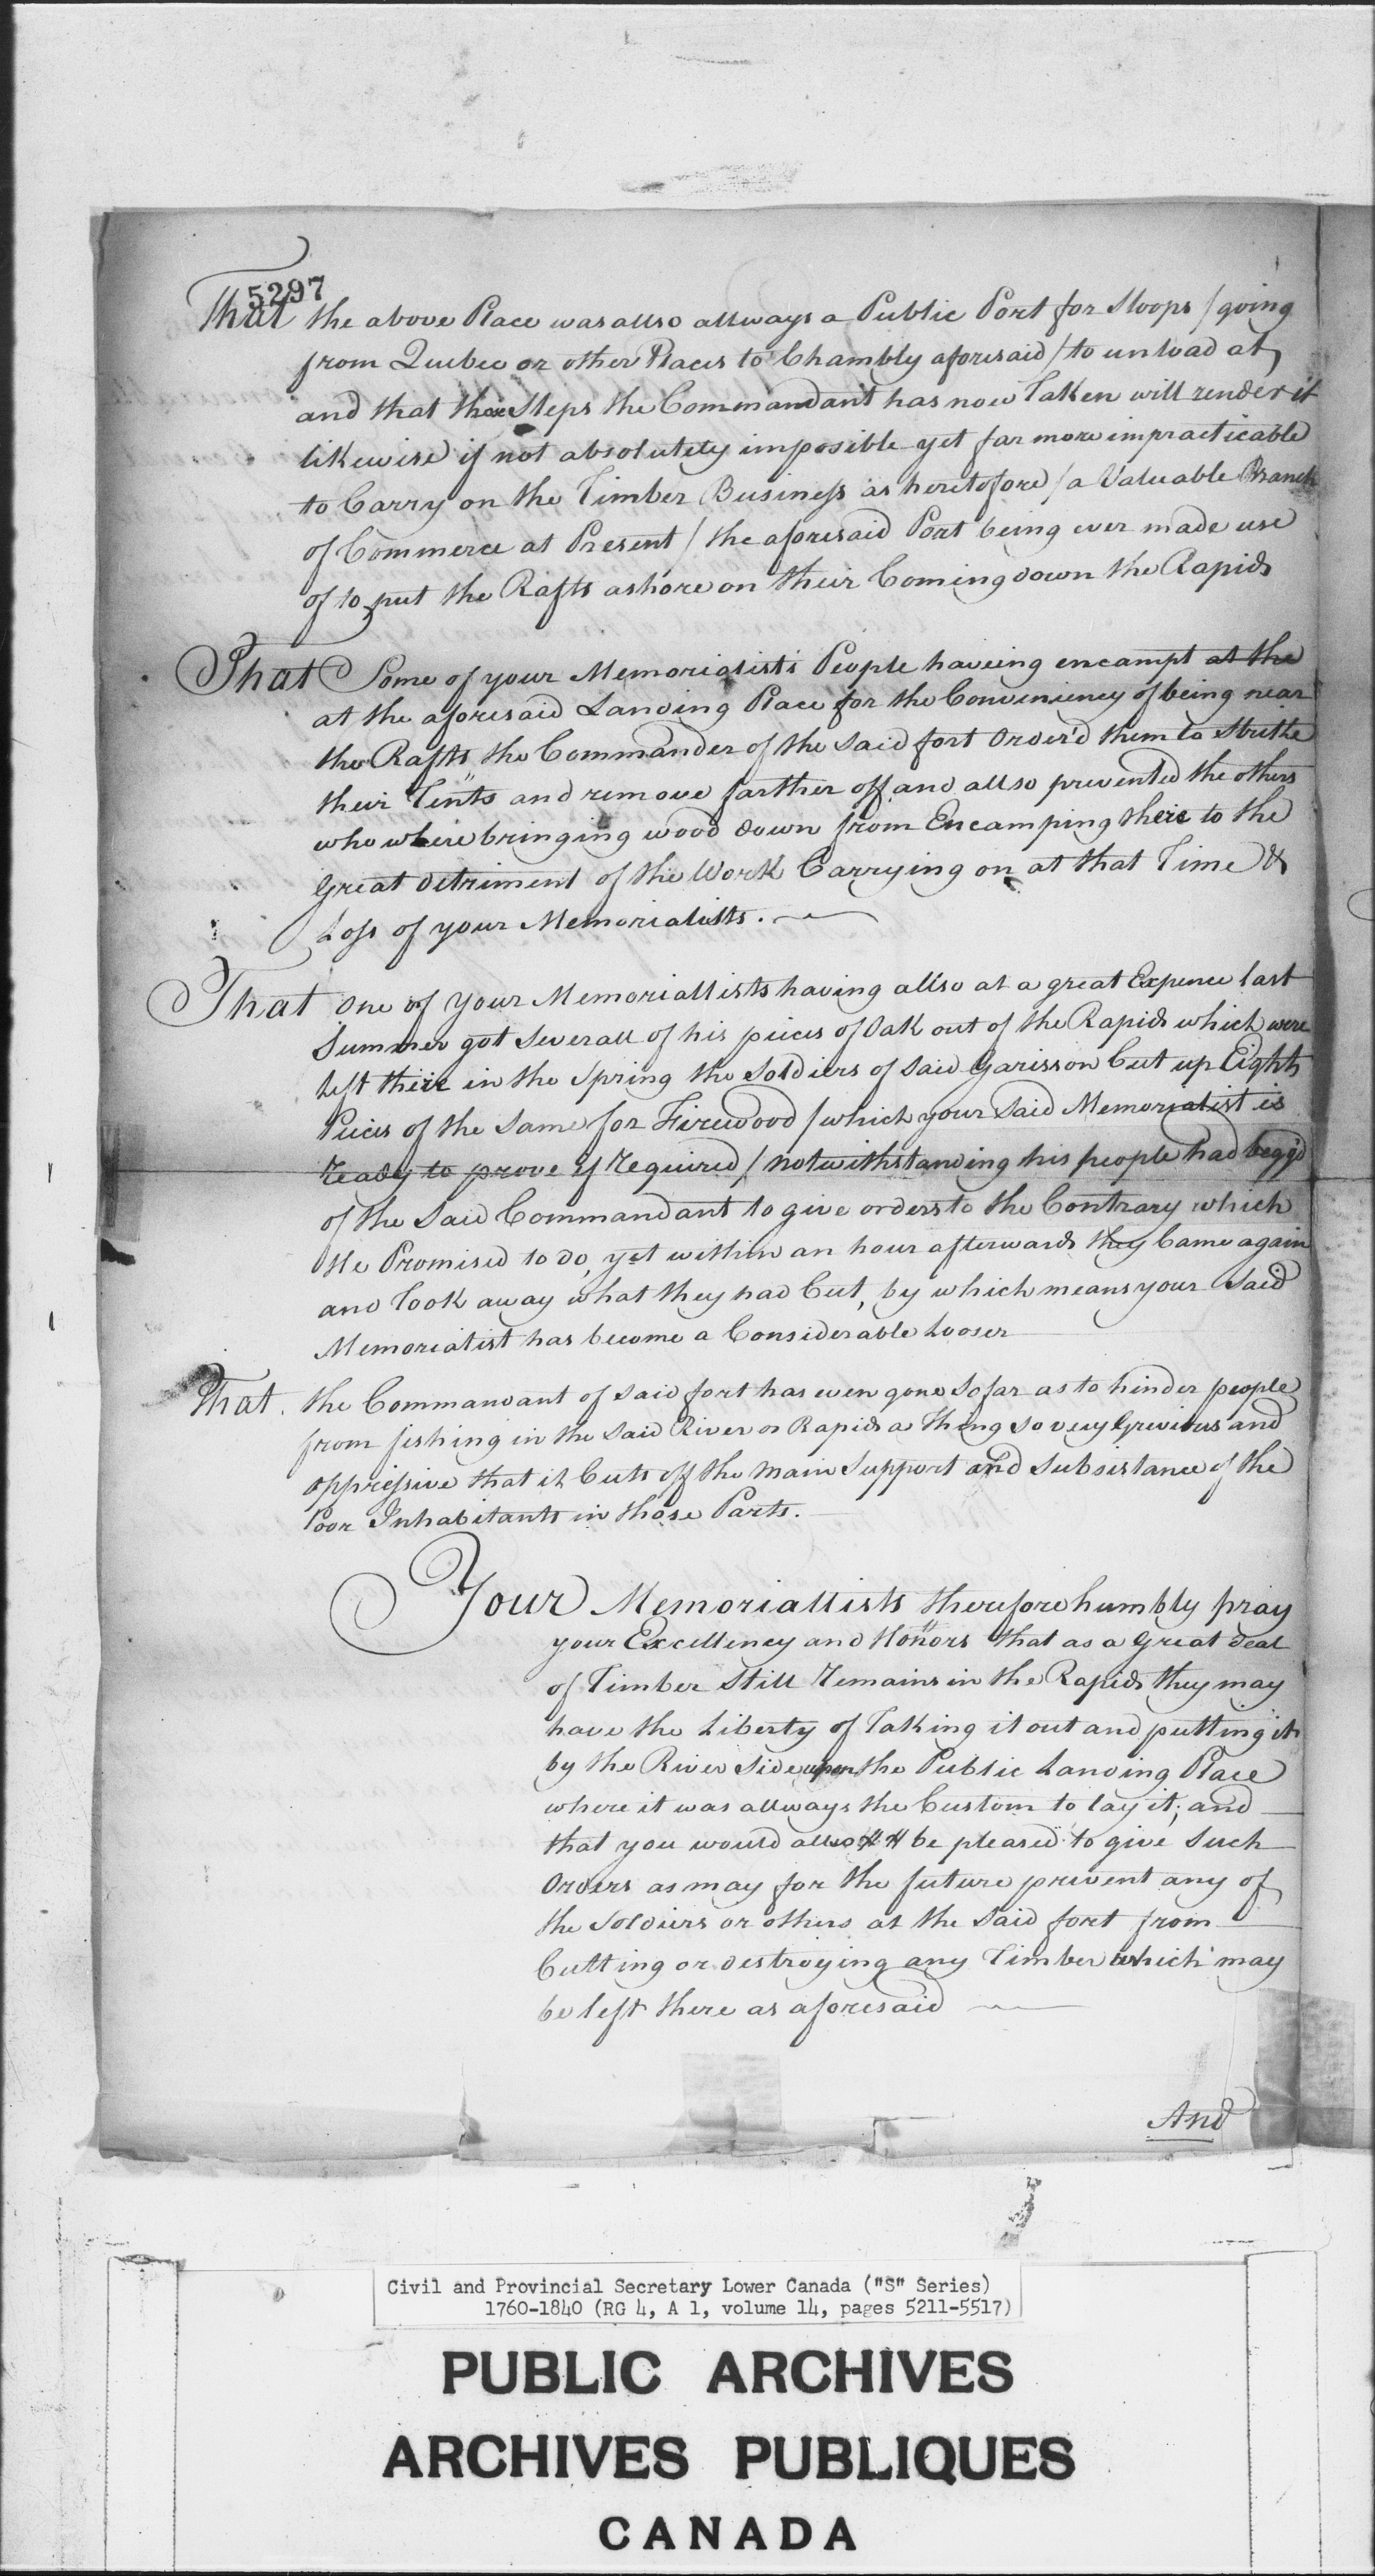 5297
That the above Place was allso allways a Public Port for Sloops / going
from Quebec or other Places to Chambly aforesaid / to unload at,
and that those Steps the Commandant has now Taken will render it
likewise if not absolutely imposible yet far more impracticable
to Carry on the Timber Business as heretofore / a Valuable Branch
of Commerce at Present / the aforesaid Port being ever made use
of to put the Rafts ashore on their Coming down the Rapids
That Some of your Memorialists People haveing encampt at the
at the aforesaid Landing Place for the Conveniency of being near
the Rafts the Commander of the said fort Order'd them to Strike
their Tents and remove farther off and allso prevented the others
who where bringing wood down from Encamping there to the
Great detriment of the Work Carrying on at that Time &
Loss of your Memorialists.
That one of your Memoriallists having allso at a great Expence last
Summer got Severall of his pieces of Oak out of the Rapids which were
left their in the Spring the Soldiers of said Garisson Cut up Eight
Pieces of the Same for Firewood / which your Said Memorialist is
ready to prove if required / notwithstanding his people had begg'd
of the Said Commandant to give orders to the Contrary which
He Promised to do, yet within an hour afterwards they Came again
and Took away what they had Cut, by which means your Said
Memorialist has become a Considerable Looser
That. the Commandant of said fort has even gone So far as to hinder people
from fishing in the Said River or Rapids a Thing so very Grevious and
oppressive that it Cuts off the main Support and Subsistance of the
Poor Inhabitants in those Parts.
Your Memoriallists therefore humbly pray
your Excellency and Honors that as a Great deal
of Timber Still remains in the Rapids they may
have the Liberty of Taking it out and putting it
by the River Side upon the Public Landing Place
where it was allways the Custom to lay it; and
that you would allso be pleased to give Such
Orders as may for the future prevent any of
the Soldiers or others at the Said fort from
Cutting or destroying any Timber which may
be left there as aforesaid
And
Civil and Provincial Secretary Lower Canada ("S" Series)
1760-1840 (RG 4, A 1, volume 14, pages 5211-5517)
PUBLIC ARCHIVES
ARCHIVES PUBLIQUES
CANADA